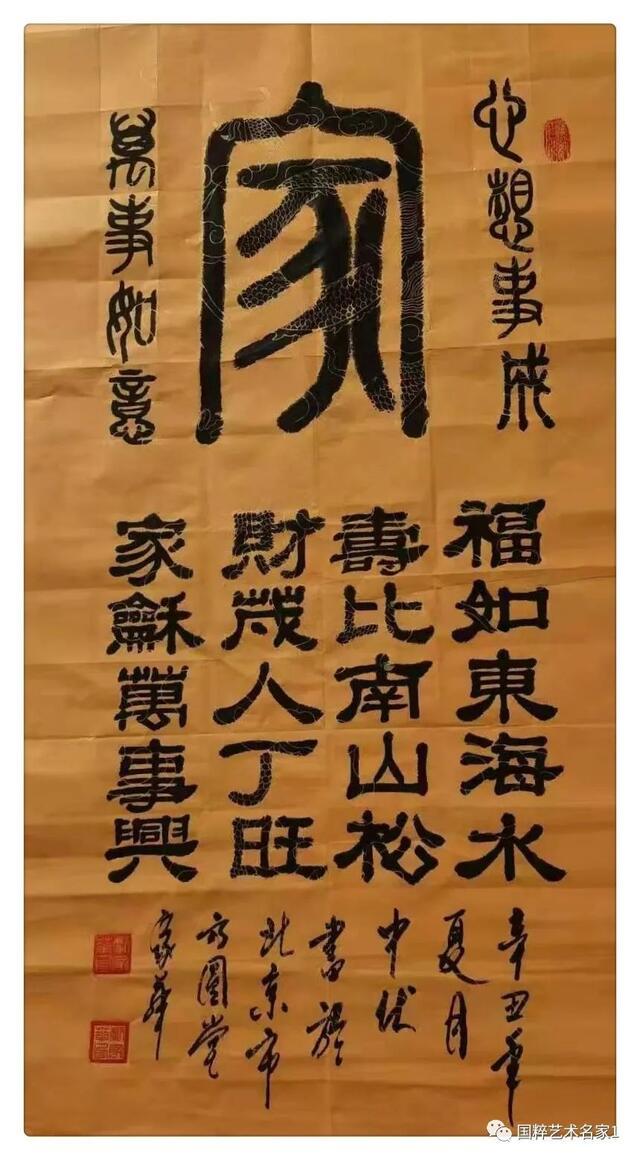 心想事成
家
萬事如意
福如東海水
壽比南山松
財茂人丁旺
家龢萬事興
辛丑年
夏月
中伏
書於
北京市
方圓堂
家華
国粹艺术名家1